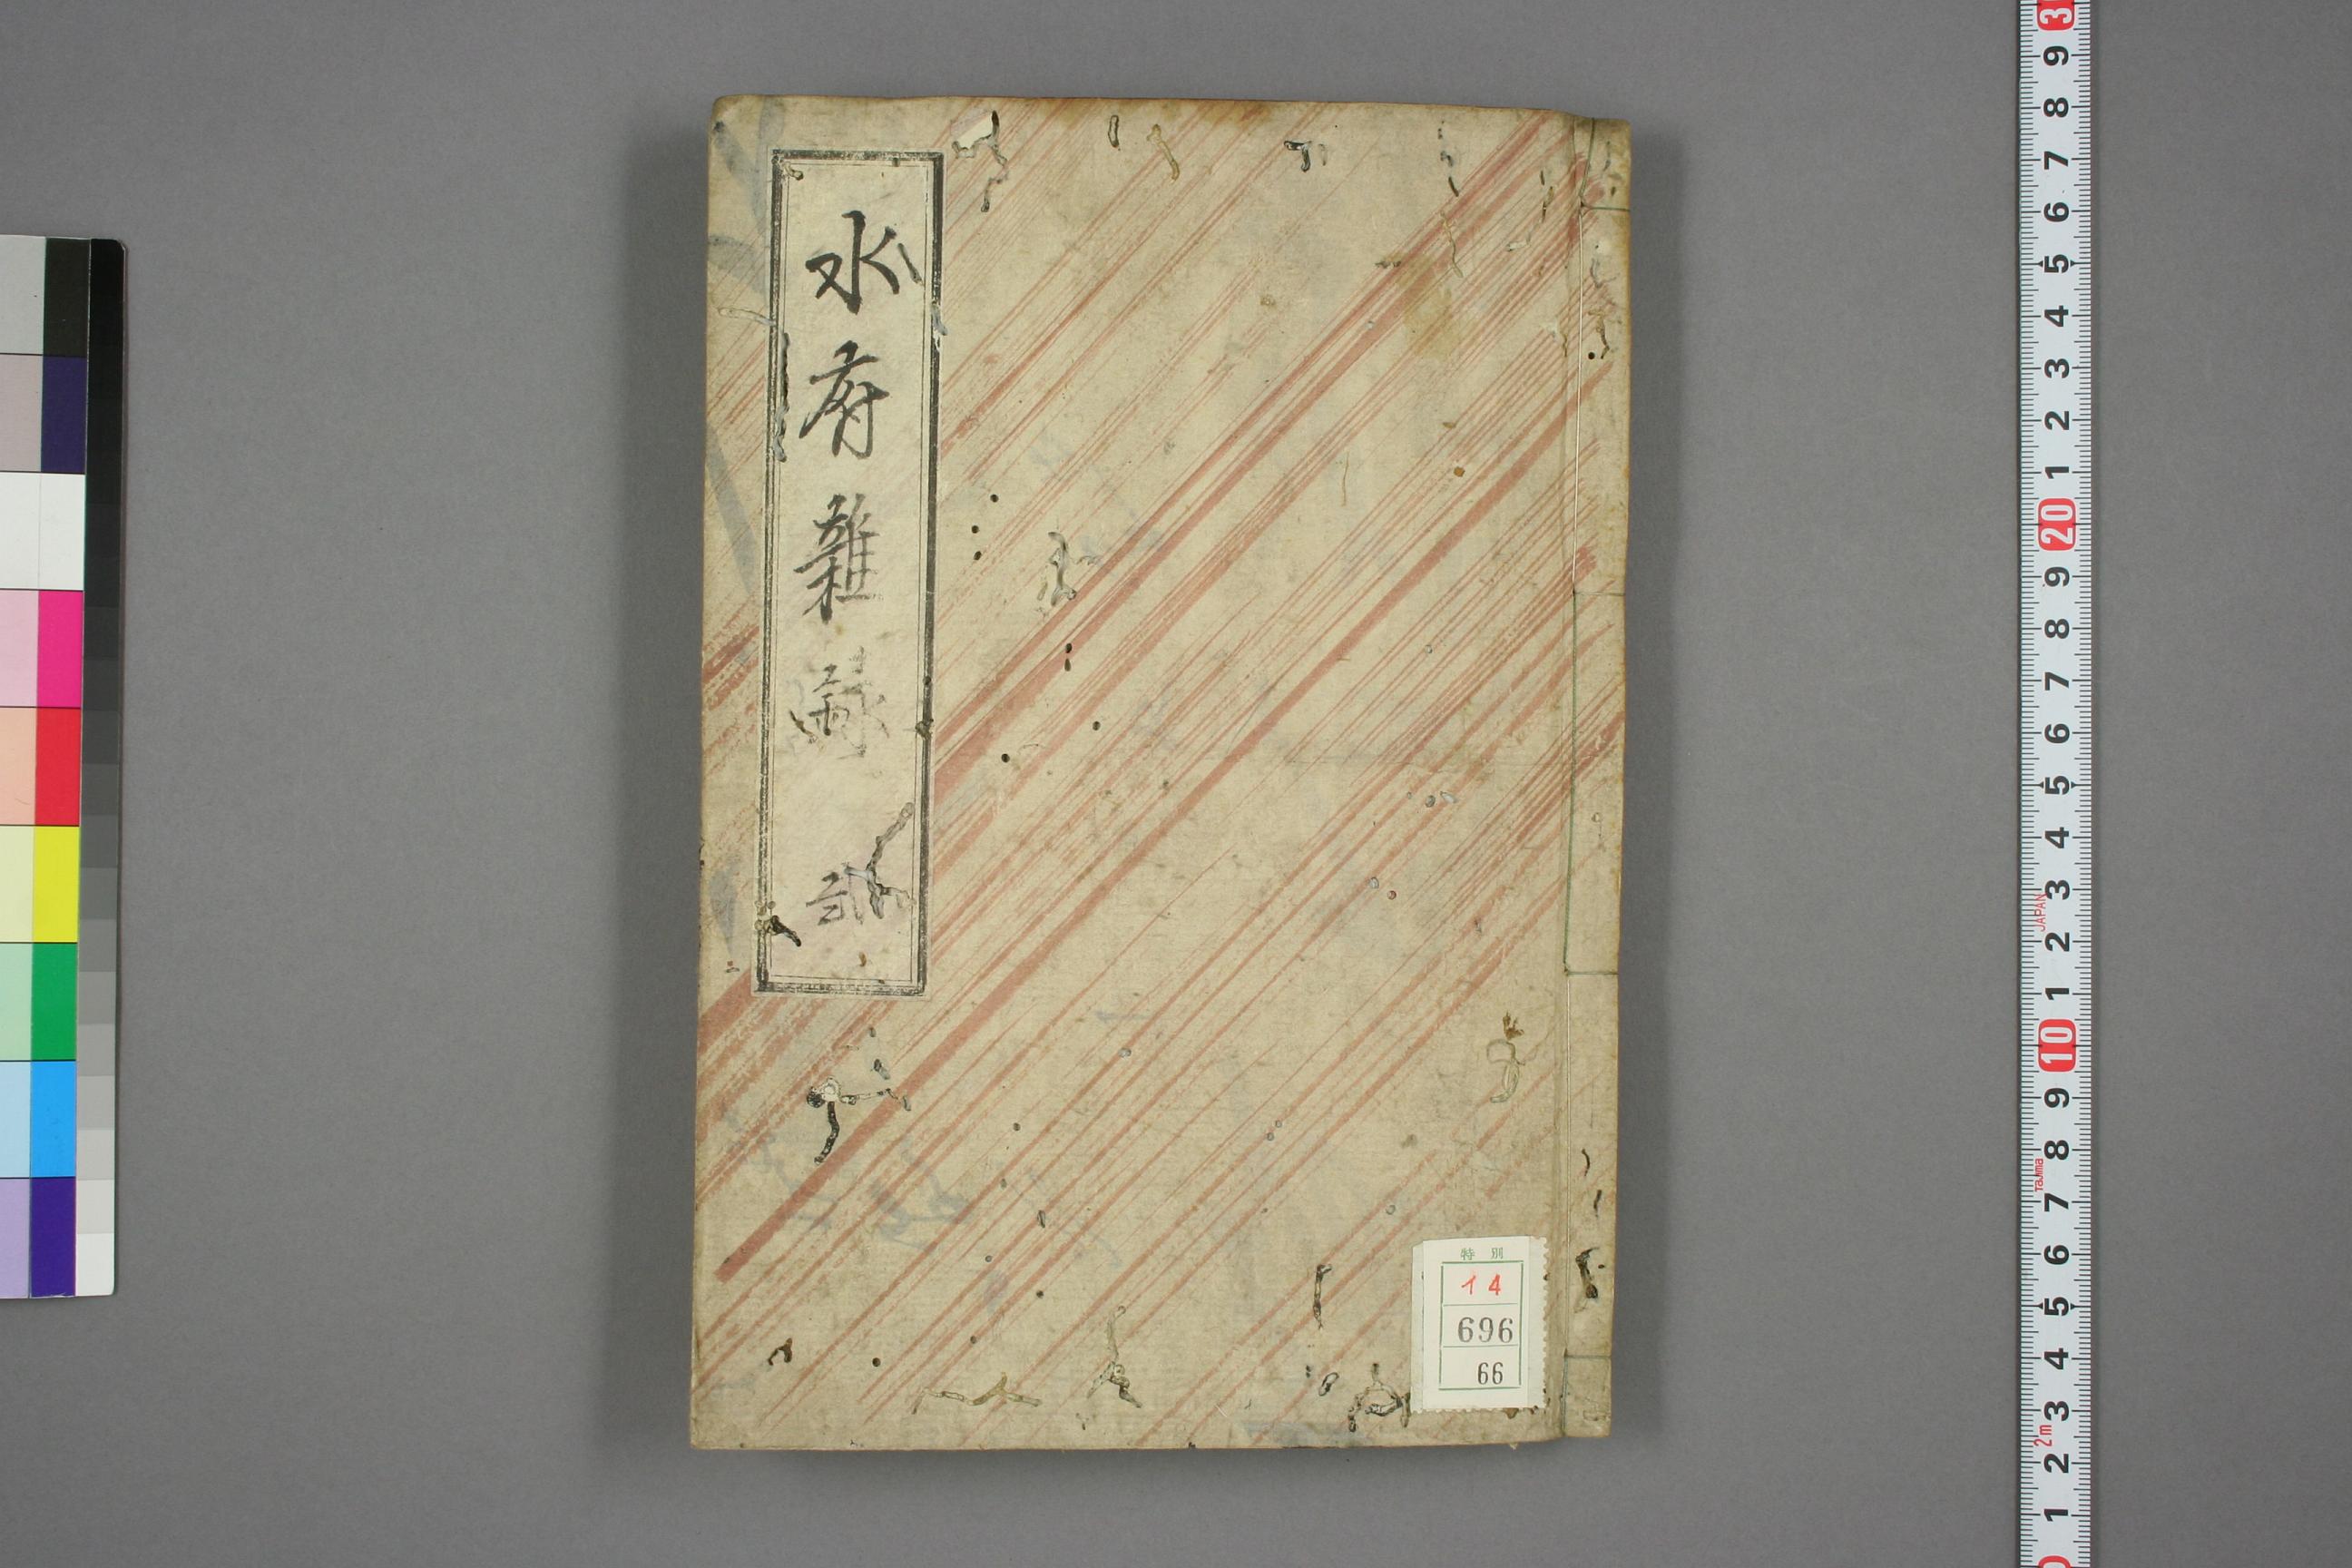 水府雜録 弐
特別
イ4
696
66
3
9
8
7
6
5
4
3
2
1
20
9
8
7
6
5
4
3
JAPAN
2
1
10
9
8
Tajima
7
6
5
4
3
2m
2
1